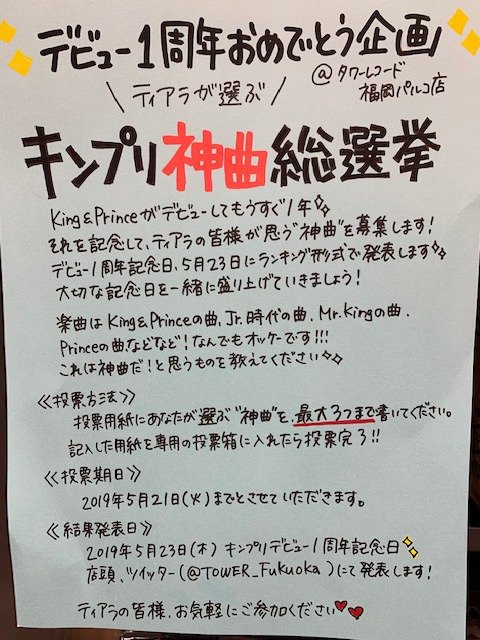 デビュー1周年おめでとう企画
@タワーレコード
福岡パルコ店
\ ティアラが選ぶ /
キンプリ神曲総選挙
King&Princeがデビューしてもうすぐ1年
それを記念して、ティアラの皆様が思う"神曲"を募集します!
デビュー1周年記念日、5月23日にランキング形式で発表します
大切な記念日を一緒に盛り上げていきましょう!
楽曲はKing&Princeの曲、Jr.時代の曲、Mr.Kingの曲、
Princeの曲などなど!なんでもオッケーです!!!
これは神曲だ!と思うものを教えてください
≪投票方法≫
投票用紙にあなたが選ぶ"神曲"を、最大3つまで書いてください。
記入した用紙を専用の投票箱に入れたら投票完了!!
≪投票期日≫
2019年5月21日(火)までとさせていただきます。
≪結果発表日≫
2019年5月23日(木) キンプリデビュー1周年記念日
店頭、ツイッター(@TOWER_Fukuoka)にて発表します!
ティアラの皆様、お気軽にご参加ください